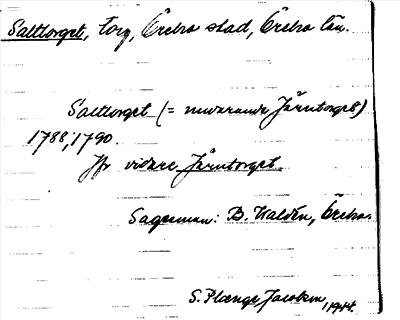 Salttorget, torg, Örebro stad, Örebro län.
Salttorget (= nuvarande Järntorget)
1788, 1790.
Jfr vidare Järntorget.
Sagesman: B. Waldén, Örebro.
S. Plænge Jacobson, 1944.